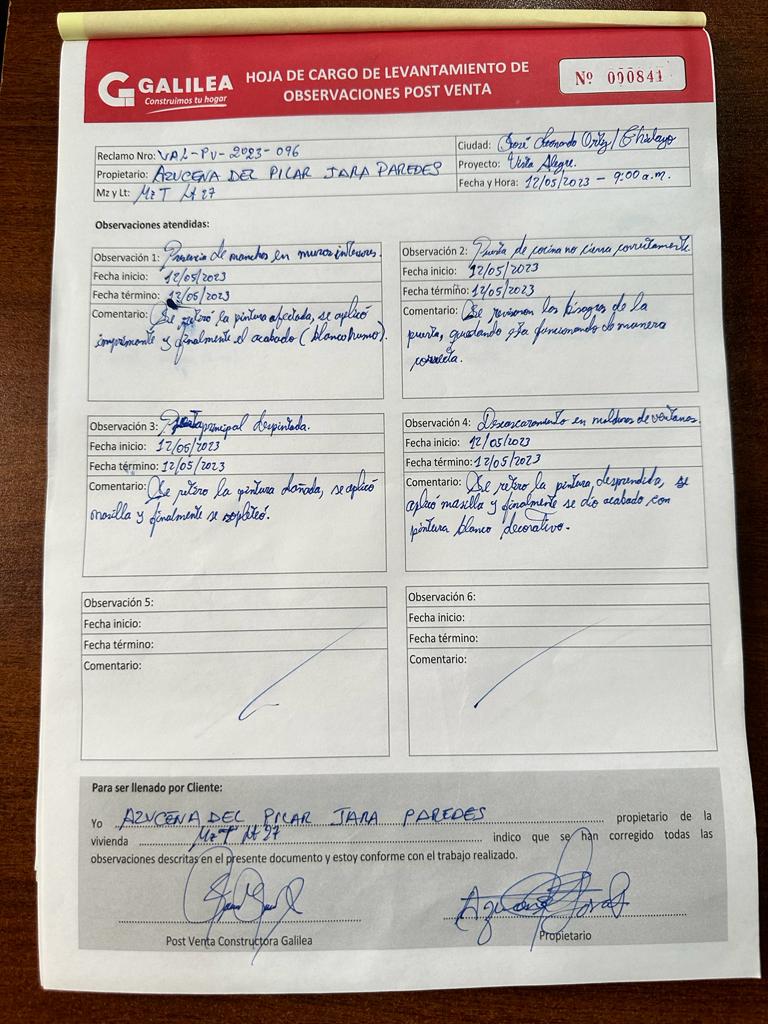 GALILEA
Construimos tu hogar
HOJA DE CARGO DE LEVANTAMIENTO DE
OBSERVACIONES POST VENTA
Nº 000841
Reclamo Nro: VAL-PV-2023-096
Propietario: AZUCENA DEL PILAR JARA PAREDES
Mz y Lt: Mz T Lt 27
Ciudad: José Leonardo Ortiz / Chiclayo
Proyecto: Vista Alegre.
Fecha y Hora: 12/05/2023 - 9:00 a.m.
Observaciones atendidas:
Observación 1: Presencia de manchas en muros interiores.
Fecha inicio: 12/05/2023
Fecha término: 12/05/2023
Comentario: Se retiro la pintura afectada, se aplicó
imprimante y finalmente el acabado (blanco humo).
Observación 2: Puerta de cocina no cierra correctamente.
Fecha inicio: 12/05/2023
Fecha término: 12/05/2023
Comentario: Se revisaron las bisagras de la
puerta, quedando esta funcionando de manera
correcta.
Observación 3: Puerta principal despintada.
Fecha inicio: 12/05/2023
Fecha término: 12/05/2023
Comentario: Se retiro la pintura dañada, se aplicó
masilla y finalmente se sopleteó.
Observación 4: Descascaramiento en molduras de ventanas.
Fecha inicio: 12/05/2023
Fecha término: 12/05/2023
Comentario: Se retiro la pintura desprendida, se
aplicó masilla y finalmente se dio acabado con
pintura blanco decorativo.
Observación 5:
Fecha inicio:
Fecha término:
Comentario:
Observación 6:
Fecha inicio:
Fecha término:
Comentario:
Para ser llenado por Cliente:
Yo AZUCENA DEL PILAR JARA PAREDES propietario de la
vivienda Mz T Lt 27 indico que se han corregido todas las
observaciones descritas en el presente documento y estoy conforme con el trabajo realizado.
Post Venta Constructora Galilea
Propietario